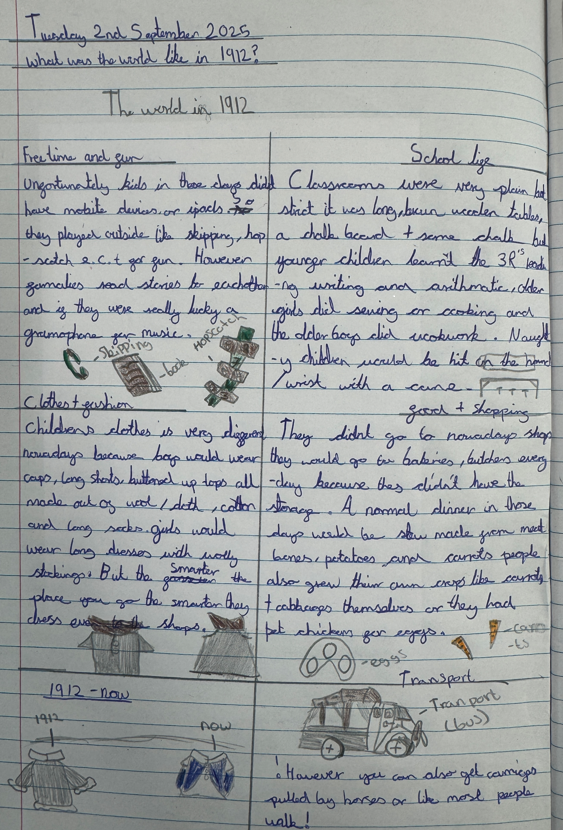 Tuesday 2nd September 2025
What was the world like in 1912?
The world in 1912
Free time and fun
Unfortunately kids in those days didnt
have mobile devices or ipads
they played outside like skipping, hop
-scotch e.c.t for fun. However
families read stories to eachother
and if they were really lucky a
gramophone for music.
Skipping
book
HOPSCOTCH
School life
Classrooms were very plain but
strict it was long, brown wooden tables,
a chalk board + some chalk but
younger children learn't the 3R's readi
-ng writing and arithmatic, older
girls did sewing or cooking and
the older boys did woodwork. Naught
-y children would be hit on the hand
/wrist with a cane.
Clothes + fashion
Childrens clothes is very different
nowadays because boys would wear
caps, long shorts, buttoned up tops all
made out of wool / cloth, cotton
and long socks. girls would
wear long dresses with wolly
stockings. But the smarter the
place you go the smarter they
dress even to the shops.
food + Shopping
They didnt go to nowadays shop
they would go to bakeries, butchers every
-day because they didn't have the
storage. A normal dinner in those
days would be stew made from meat
bones, potatoes and carrots people
also grew their own crops like carrots
+ cabbages themselves or they had
pet chickens for eggs.
-eggs
-carro
-ts
1912 - now
1912
now
Transport
Tranport
(bus)
! However you can also get carriages
pulled by horses or like most people
walk!